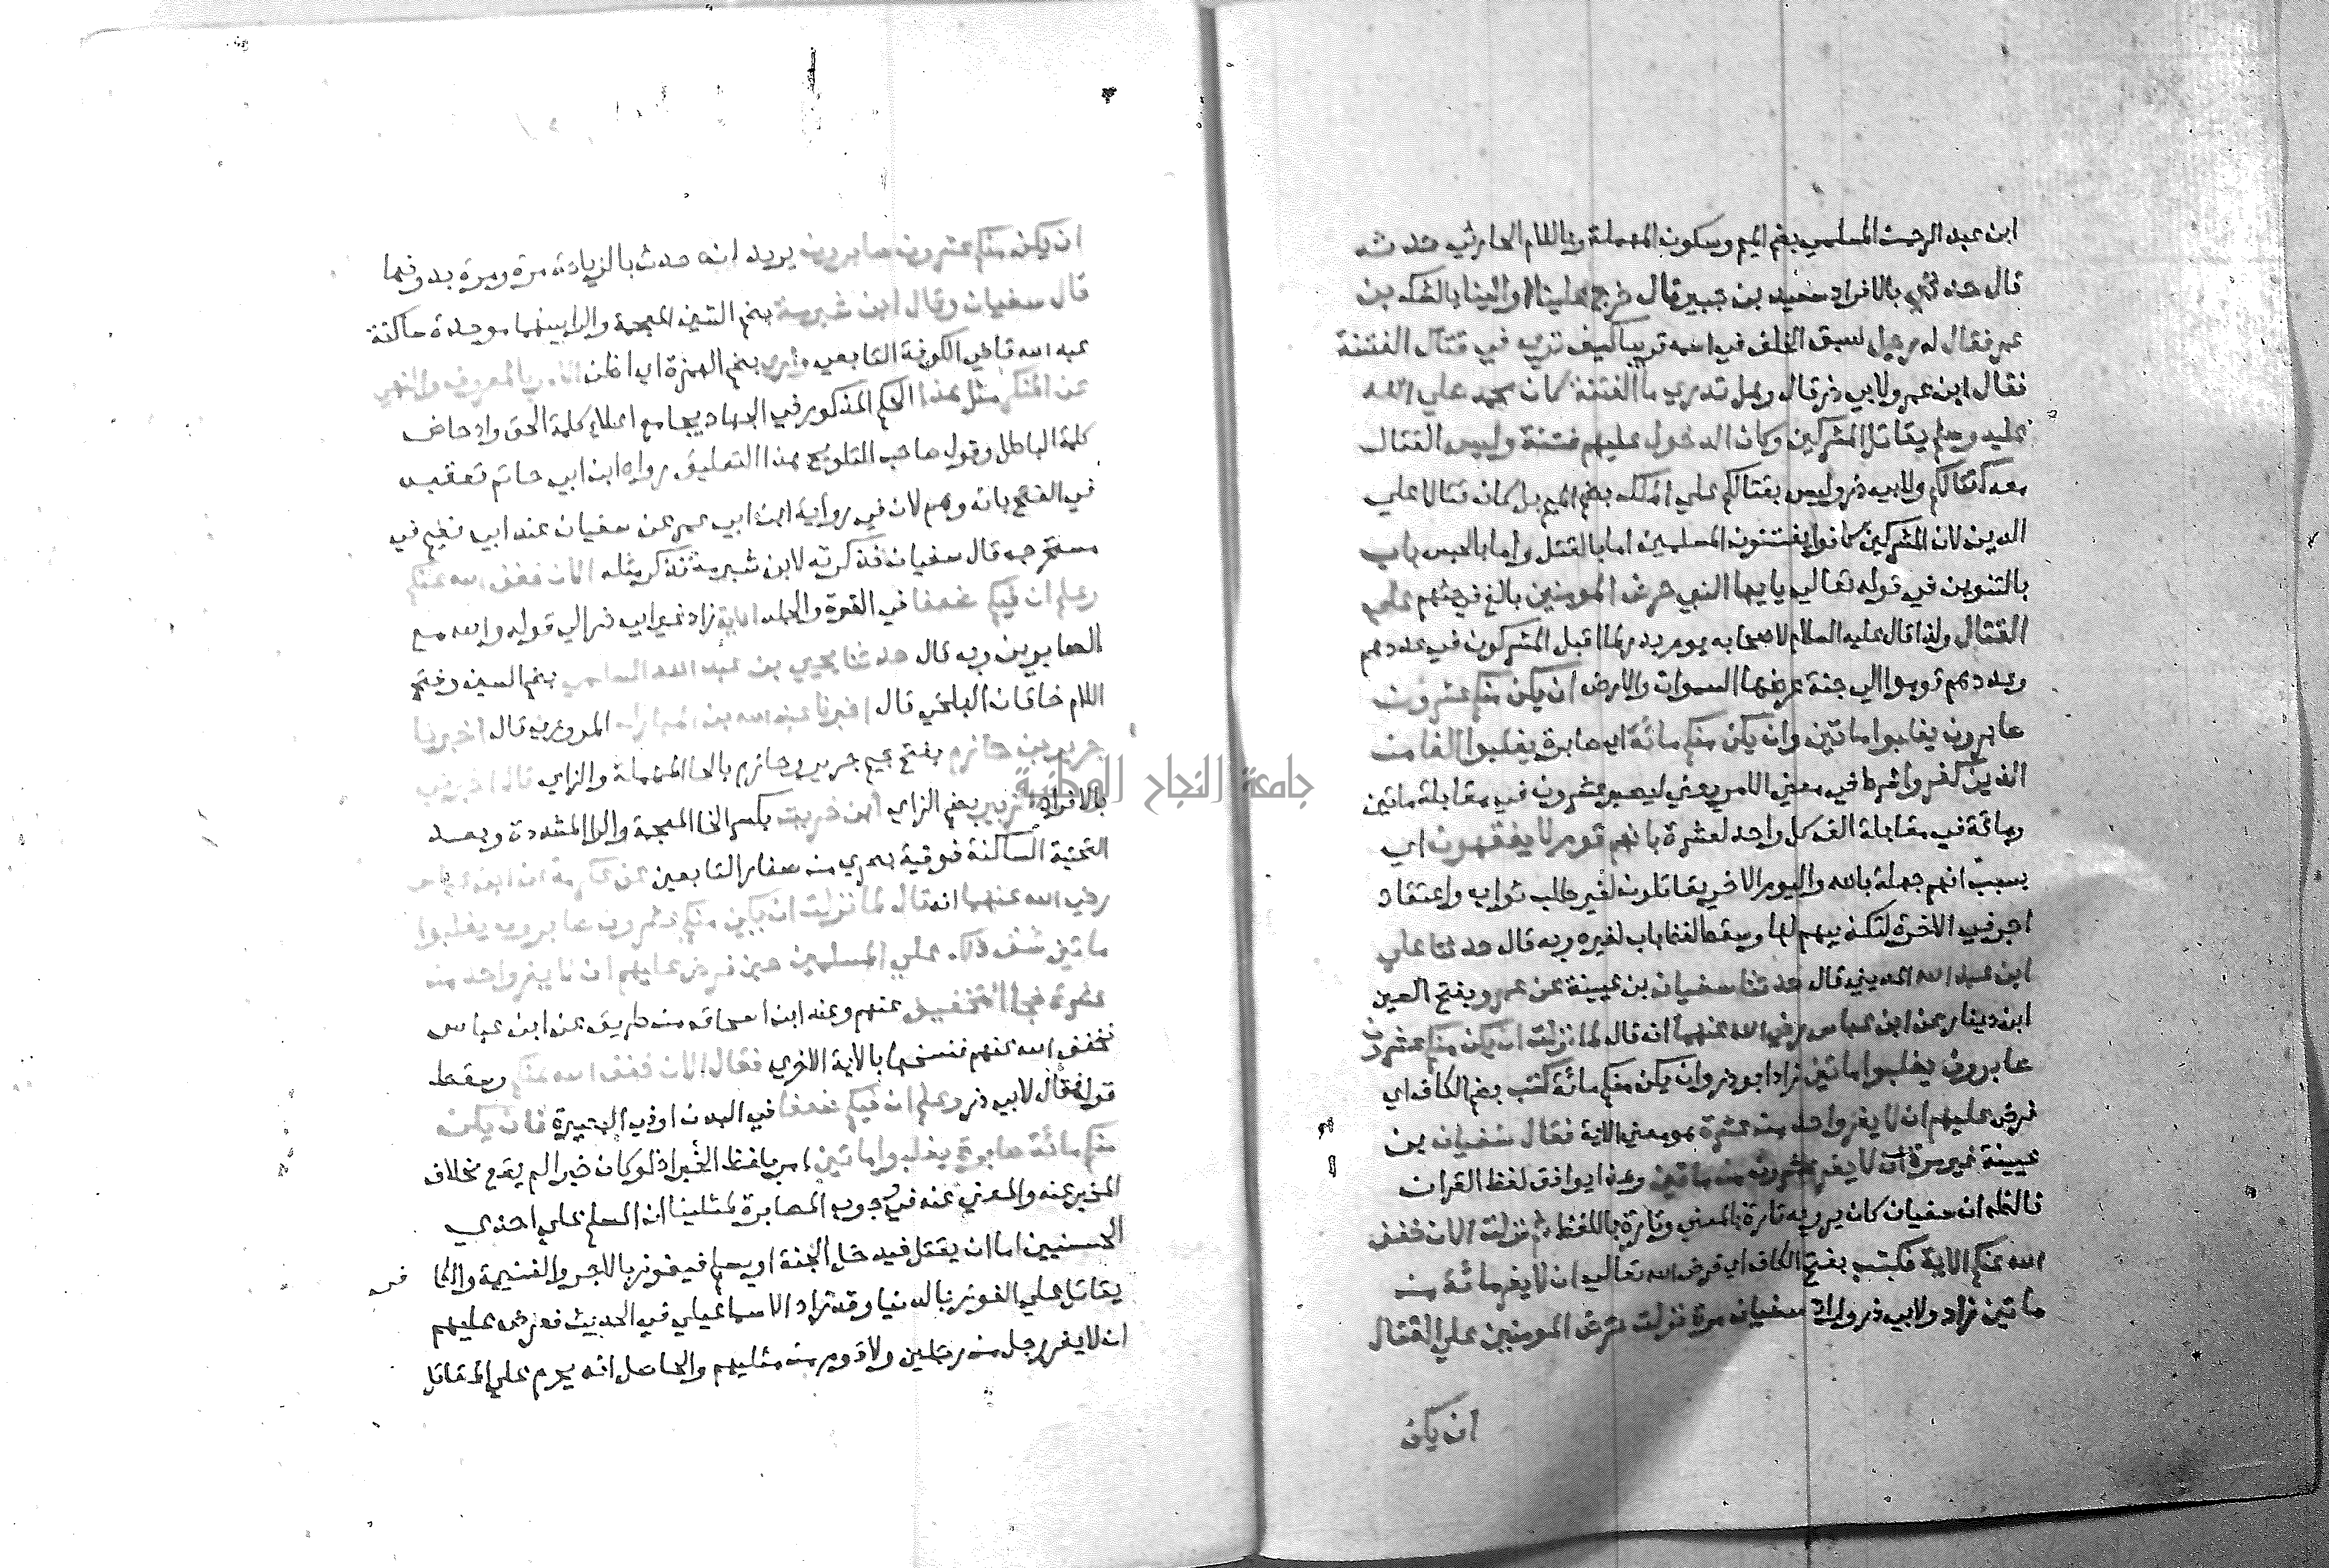 ابن عبد الرحمن المسلمي بضم الميم وسكون المهملة وباللام الحارثي حدثه
قال حدثني بالافراد سعيد بن جبير قال خرج علينا او الينا بالشك بن
عمر فقال له رجل سبق الخلف في اسمه قريبا كيف تري في قتال الفتنة
فقال ابن عمر ولابي ذر قال وهل تدري ما الفتنة كان محمد صلي الله
عليه وسلم يقاتل المشركين وكان الدخول عليهم فتنة وليس القتال
معه كقتالكم ولابي ذر وليس بقتالكم علي الملك بضم الميم بل كان قتالا علي
الدين لان المشركين كانوا يفتنون المسلمين اما بالقتل واما بالحبس باب
بالتنوين في قوله تعالي يايها النبي حرض المومنين بالغ في حثهم علي
القتال ولذا قال عليه السلام لاصحابه يوم بدر لما اقبل المشركون في عددهم
وعددهم قوموا الي جنة عرضها السموات والارض ان يكن منكم عشرون
صابرون يغلبوا ماتين وان يكن منكم مائة اي صابرة يغلبوا الفا من
الذين كفروا شرط في معني الامر يعني ليصبر عشرون في مقابلة ماتين
ومائة في مقابلة الف كل واحد لعشرة بانهم قوم لا يفقهون اي
بسبب انهم جهلة بالله واليوم الاخر يقاتلون لغير طالب ثواب واعتقاد
اجر في الاخرة لتكذيبهم لها وسقط لفظ باب لغيره وبه قال حدثنا علي
ابن عبد الله المديني قال حدثنا سفيان بن عيينة عن عمرو بفتح العين
ابن دينار عن ابن عباس رضي الله عنهما انه قال لما نزلت ان يكن منكم عشرون
صابرون يغلبوا ماتين زاد ابو ذر وان يكن منكم مائة كتب بضم الكاف اي
فرض عليهم ان لا يفر واحد من عشرة هو معني الاية فقال سفيان بن
عيينة غير مرة ان لا يفر عشرون من ماتين وهذا يوافق لفظ القران
فالظاهر ان سفيان كان يرويه تارة بالمعني وتارة باللفظ ثم نزلت الان خفف
الله عنكم الاية فكتب بفتح الكاف اي فرض الله تعالي ان لا يفر مائة من
ماتين زاد ولابي ذر وزاد سفيان مرة نزلت حرض المومنين علي القتال
ان يكن
ان يكن منكم عشرون صابرون يريد انه حدث بالزيادة مرة ومرة بدونها
قال سفيان وقال ابن شبرمة بضم الشين المعجمة والرا بينهما موحدة ساكنة
عبد الله قاضي الكوفة التابعي واري بضم الهمزة اي اظن الامر بالمعروف والنهي
عن المنكر مثل هذا الحكم المذكور في الجهاد بجامع اعلاء كلمة الحق وادحاض
كلمة الباطل وقول صاحب التلويح هذا التعليق رواه ابن ابي حاتم تعقبه
في الفتح بانه وهم لان في رواية ابن ابي عمر عن سفيان عند ابي نعيم في
مستخرجه قال سفيان فذكرته لابن شبرمة فذكر مثله الان خفف الله عنكم
وعلم ان فيكم ضعفا في القوة والجلد الاية زاد غير ابي ذر الي قوله والله مع
الصابرين وبه قال حدثنا يحيي بن عبد الله السلمي بضم السين وفتح
اللام خاقان البلخي قال اخبرنا عبد الله بن المبارك المروزي قال اخبرنا
جرير بن حازم بفتح جيم جرير وحازم بالحا المهملة والزاي قال اخبرني
بالافراد الزبير بضم الزاي ابن خريت بكسر الخا المعجمة والرا المشددة وبعد
التحتية الساكنة فوقية بصري من صغار التابعين عن عكرمة عن ابن عباس
رضي الله عنهما انه قال لما نزلت ان يكن منكم عشرون صابرون يغلبوا
ماتين شق ذلك علي المسلمين حين فرض عليهم ان لا يفر واحد من
عشرة فجا التخفيف عنهم وعند ابن اسحاق من طريق عن ابن عباس
فخفف الله عنهم فنسخها بالاية الاخري فقال الان خفف الله عنكم وسقط
قوله فقال لابي ذر وعلم ان فيكم ضعفا في البدن او في البصيرة فان يكن
منكم مائة صابرة يغلبوا ماتين امر بلفظ الخبر اذ لو كان خبرا لم يقع بخلاف
المخبر عنه والمعني عنه في وجوب المصابرة لمثلينا ان المسلم علي احدي
الحسنيين اما ان يقتل فيدخل الجنة او يسلم فيفوز بالاجر والغنيمة والكا فر
يقاتل علي الفوز بالدنيا وقد زاد الاسماعيلي في الحديث ففرض عليهم
ان لا يفر رجل من رجلين ولا قوم من مثليهم والحاصل انه يحرم علي المقاتل
جامعة النجاح الوطنية